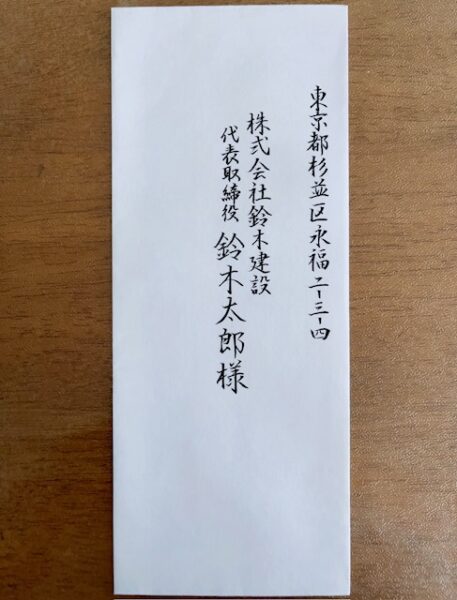 東京都杉並区永福二-三-四
株式会社鈴木建設
代表取締役 鈴木太郎様